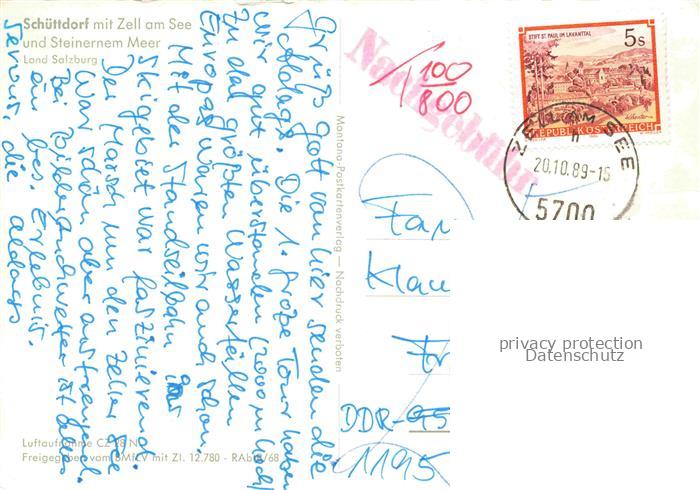 Schüttdorf mit Zell am See
und Steinernem Meer
Land Salzburg
Grüß Gott von hier senden die
Aldags. Die 1. große Tour haben
wir gut überstanden (2000 m hoch)
Zu den größten Wasserfällen
Europas waren wir auch schon.
Mit der Standseilbahn ins
Skigebiet war faszinierend.
Der Marsch um den Zeller See
war schön aber anstrengend.
Bei Bilderbuchwetter ist dies
ein bes. Erlebnis.
Servus, die Aldags
Luftaufnahme CZ 28 N
Freigegeben vom BMfLV mit Zl. 12.780 - RAbt/68
Montana-Postkartenverlag — Nachdruck verboten
Nachgebühr
100
800
STIFT ST. PAUL IM LAVANTTAL
5 S
REPUBLIK ÖSTERREICH
ZELL AM SEE
20.10.89-15
5700
Fam
Klau
DDR-95
1195
privacy protection
Datenschutz